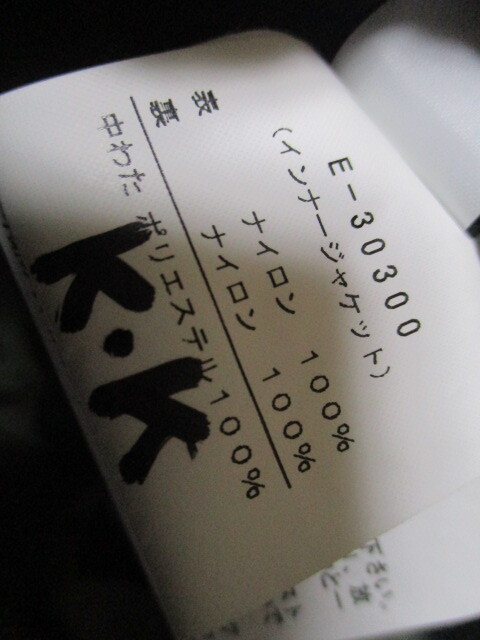 E-30300
(インナージャケット)
表 ナイロン 100%
裏 ナイロン 100%
中わた ポリエステル 100%
K・K
下さい。